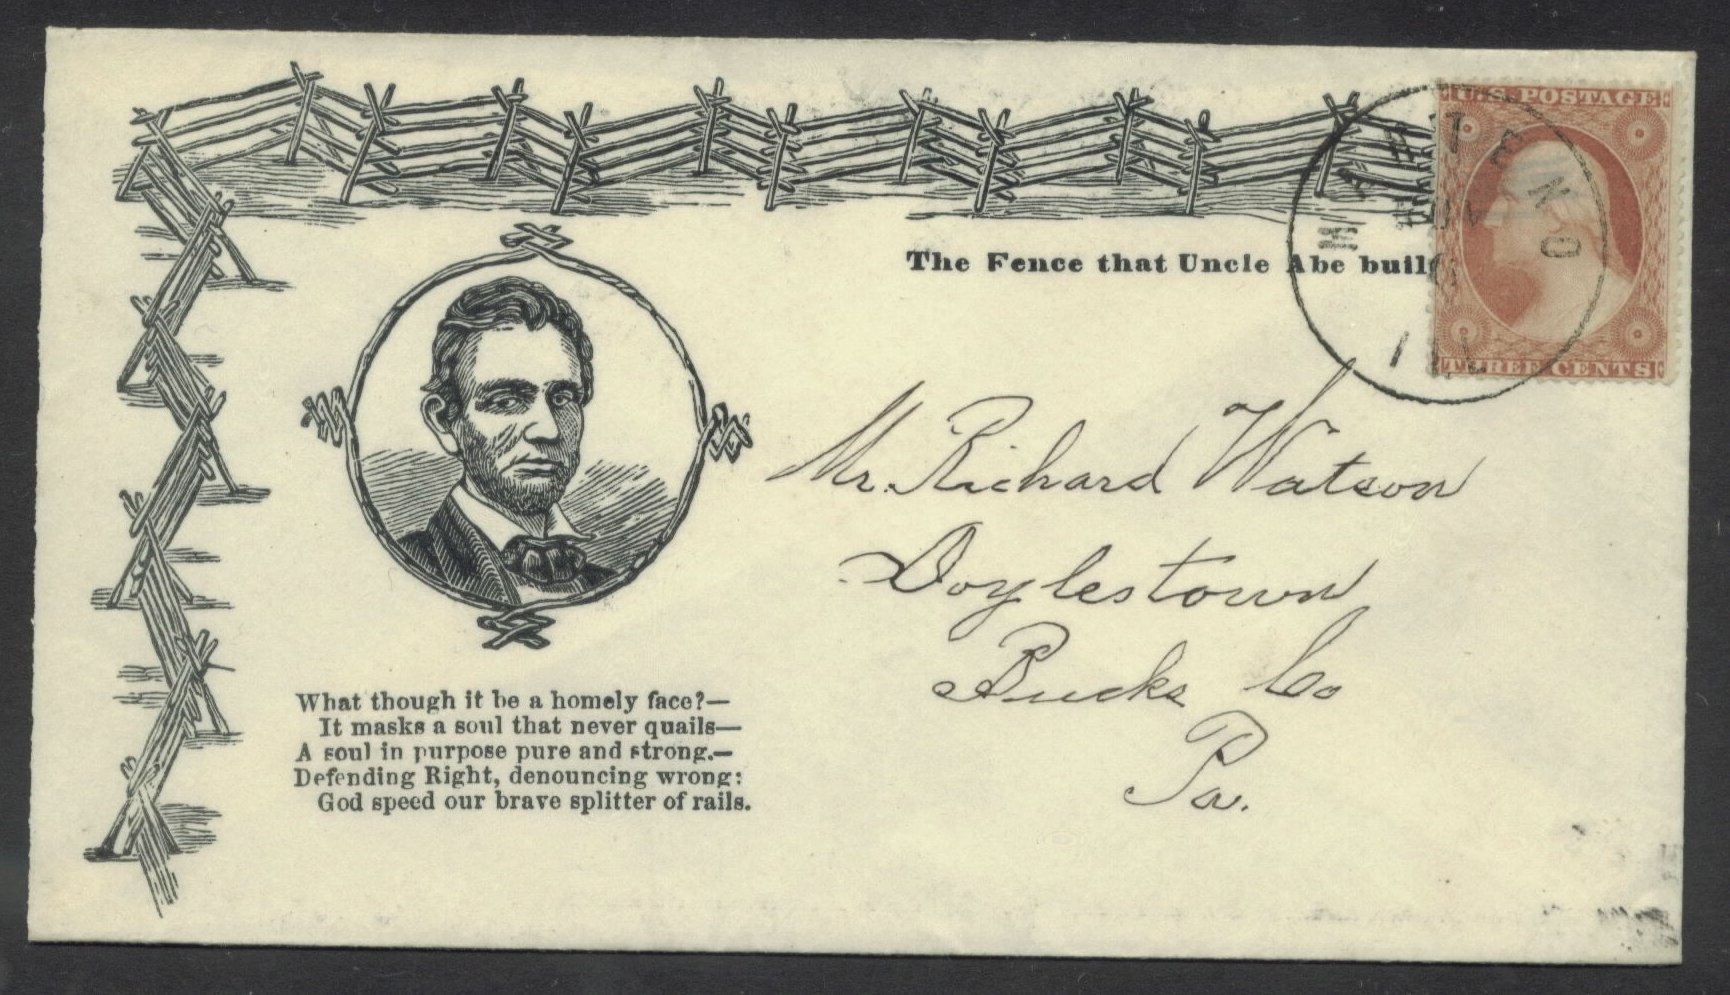 U.S. POSTAGE
THREE CENTS
The Fence that Uncle Abe buil
Mr. Richard Watson
Doylestown
Bucks Co
Pa.
What though it be a homely face?—
It masks a soul that never quails—
A soul in purpose pure and strong.—
Defending Right, denouncing wrong:
God speed our brave splitter of rails.